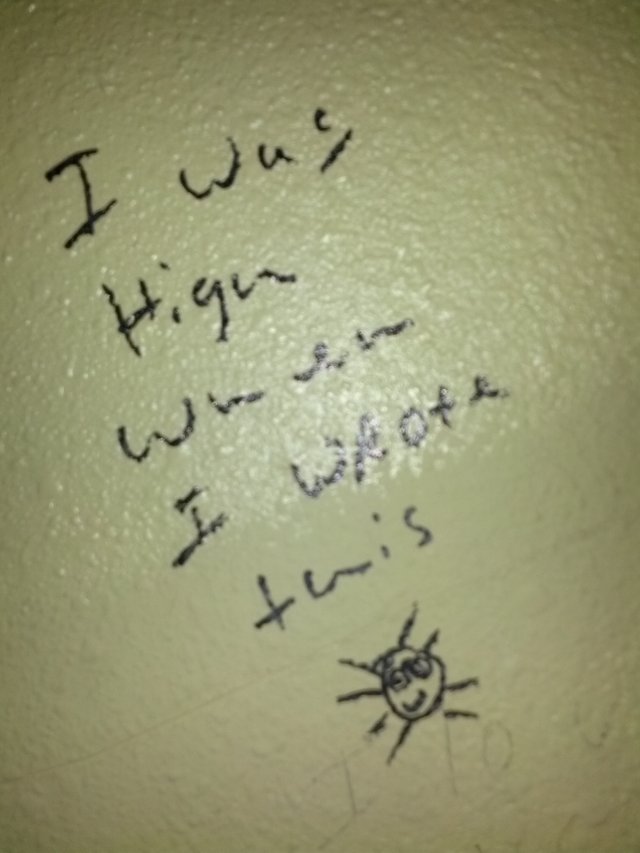 I was
High
When
I wrote
this